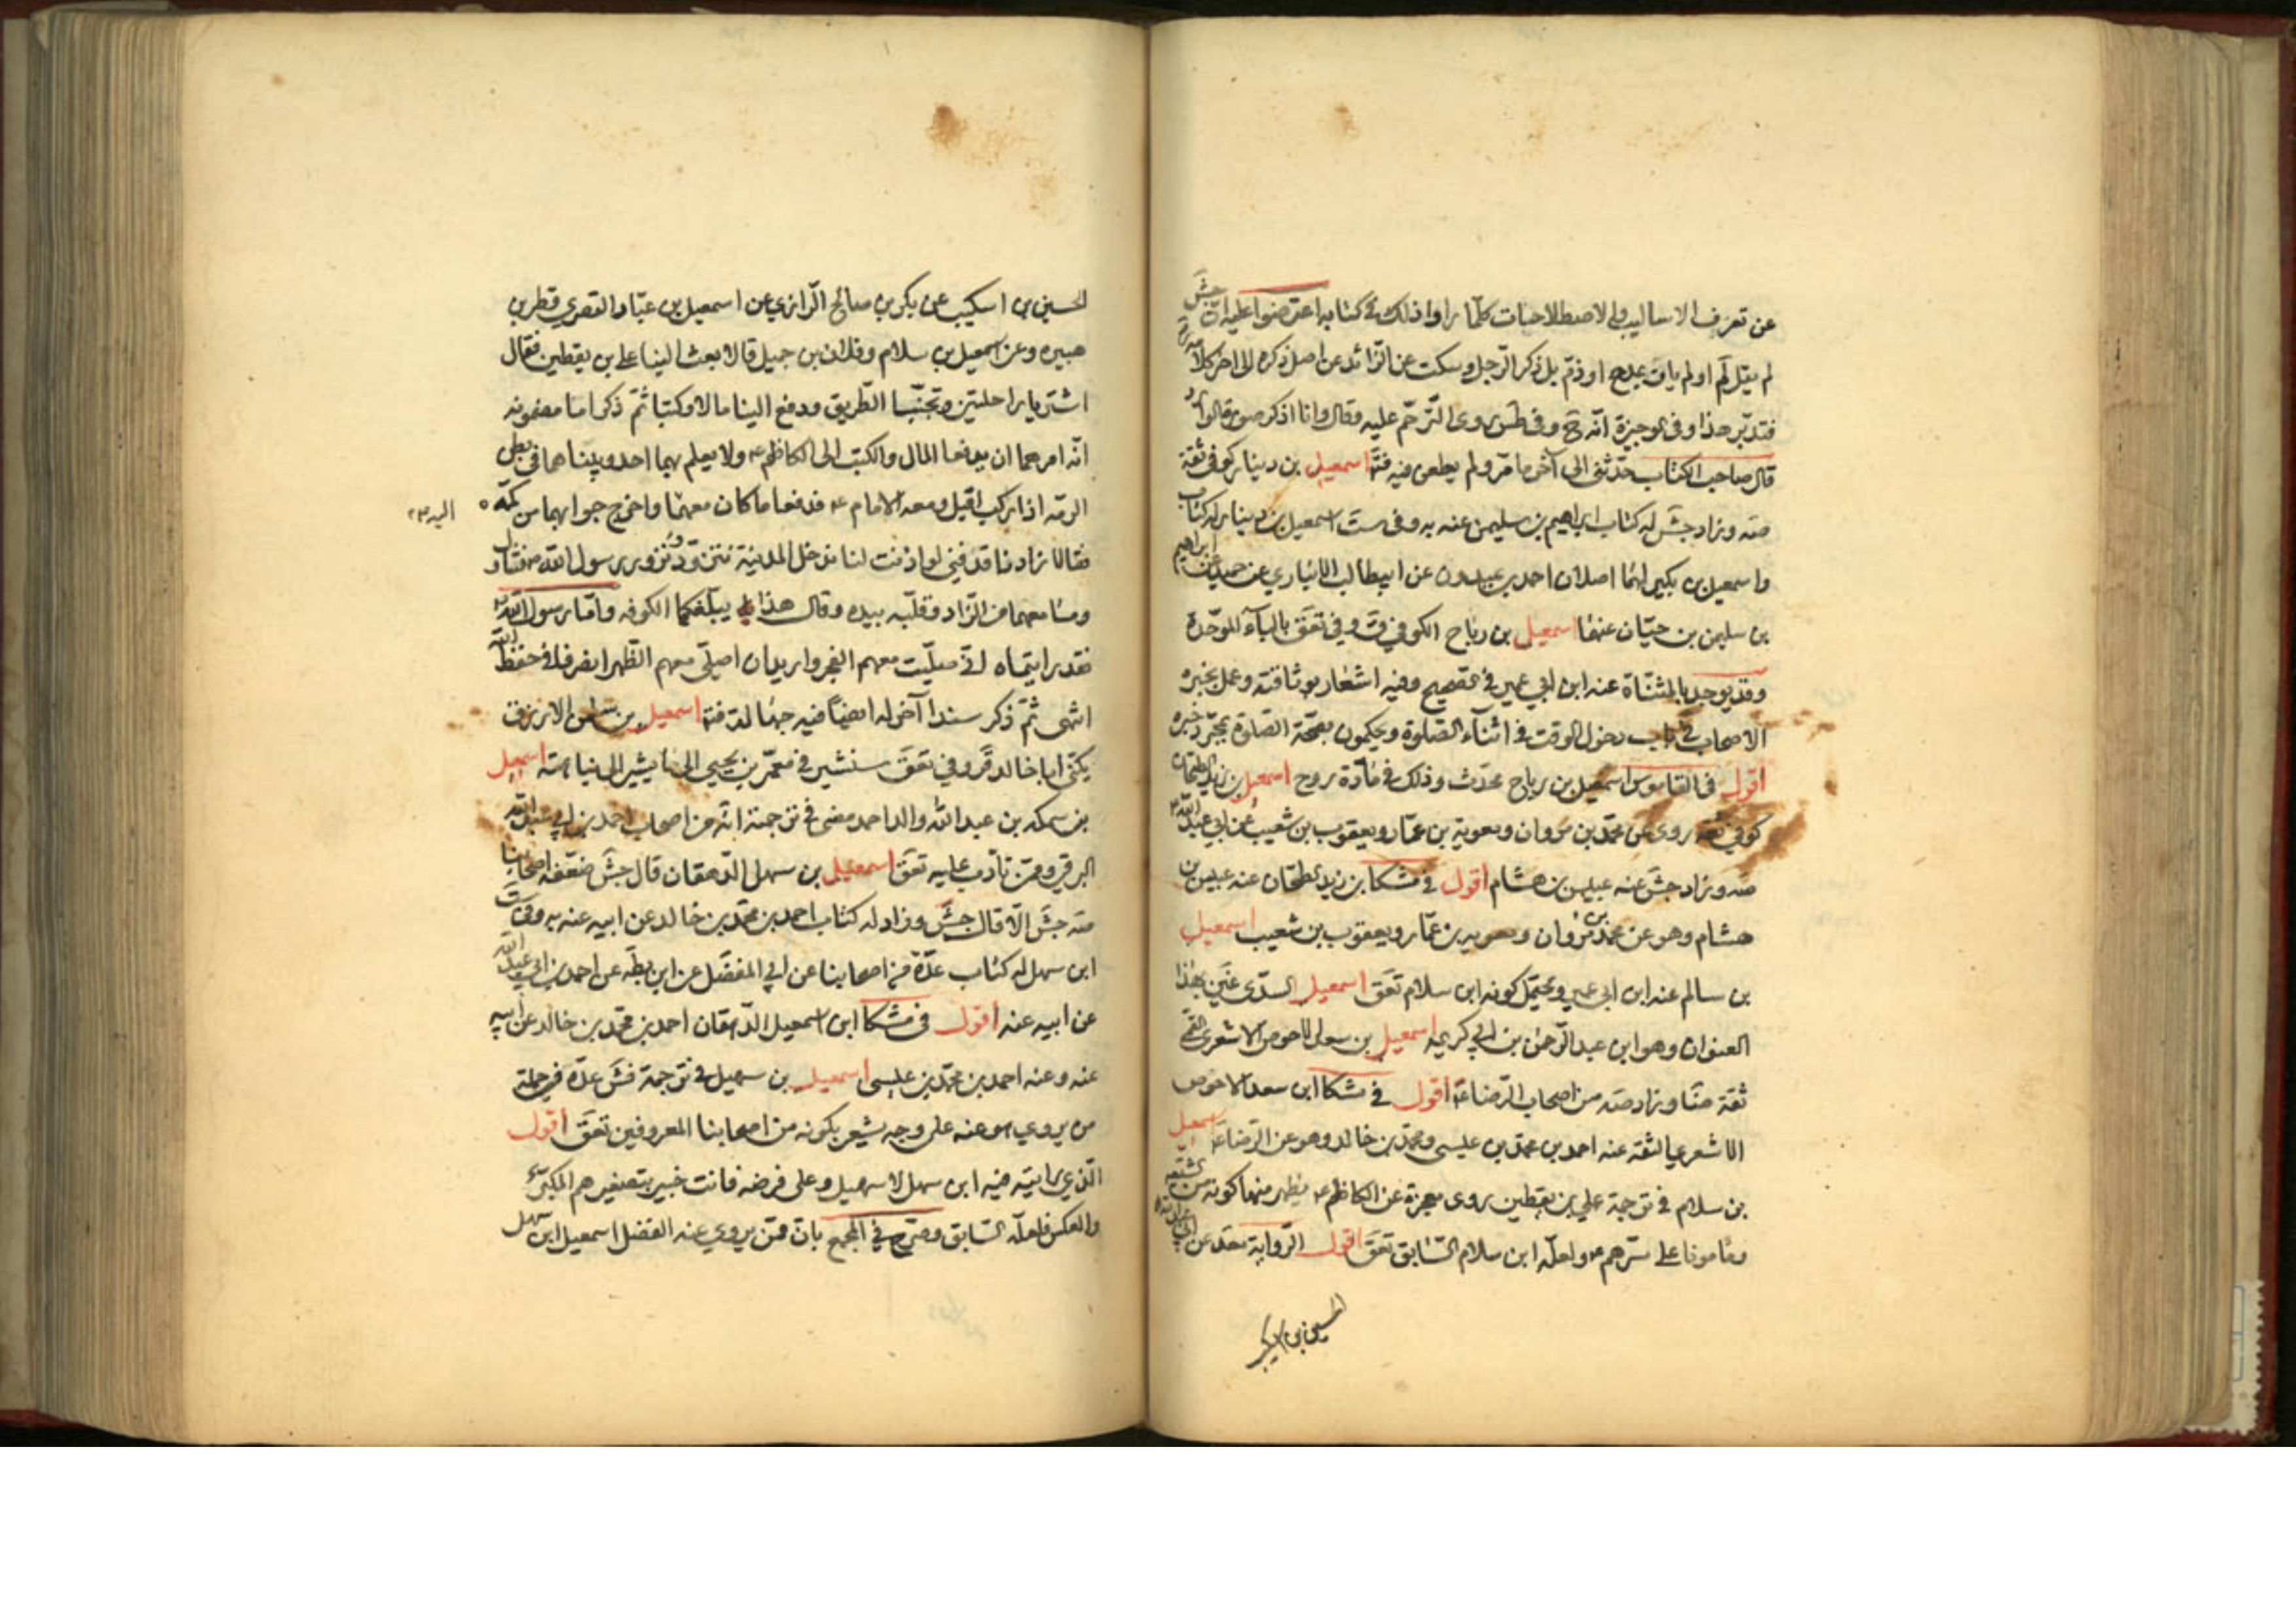 عن تعرف الاساليب والاصطلاحات كلما راوا ذلك في كتابه اعترضوا عليه ان جش
لم يقل لم او لم يات بمدح او ذم بل ذكر الرجل وسكت عن الزائد عن اصل ذكره الى اخر كلامه
فتدبر هذا وفي الوجيزة انه ح وفي طس روى الترحم عليه وقال وانا اذكر صورة
قال صاحب الكتاب حدثني الى آخر ما مر ولم يطعن فيه فتد اسمعيل بن دينار كوفي ثقة
صه وزاد جش له كتاب ابراهيم بن سليمن عنه به وفي ست اسمعيل بن دينار له كتاب
واسمعيل بن بكير لهما اصلان احمد بن عبدون عن ابيطالب الانباري عن حميد عن ابراهيم
بن سليمن بن حيان عنهما اسمعيل بن رباح الكوفي ق وفي تعق بالباء الموحدة
وقد يوجد بالمثناة عنه ابن ابي عمير في الصحيح وفيه اشعار بوثاقته وعمل بخبره
الاصحاب في باب دخول الوقت في اثناء الصلوة ويحكمون بصحة الصلوة بمجرد خبره
اقول في القاموس اسمعيل بن رباح محدث وذلك في مادة روح اسمعيل بن زيد الطحان
كوفي ثقة روى عن محمد بن مروان ومعوية بن عمار ويعقوب بن شعيب عن ابي عبد الله
صه وزاد جش عنه عبيس بن هشام اقول في مشكا بن زيد الطحان عنه عبيس بن
هشام وهو عن محمد بن مروان ومعوية بن عمار ويعقوب بن شعيب اسمعيل
بن سالم عنه ابن ابي عمير ويحتمل كونه ابن سلام تعق اسمعيل السدي بهذا
العنوان وهو ابن عبد الرحمن بن ابي كريمة اسمعيل بن سعد الاحوص الاشعري القمي
ثقة ضا وزاد صه من اصحاب الرضا ع اقول في مشكا ابن سعد الاحوص
الاشعري الثقة عنه احمد بن محمد بن عيسى ومحمد بن خالد وهو عن الرضا ع اسمعيل
بن سلام في ترجمة علي بن يقطين روى معجزة عن الكاظم ع يظهر منها كونه من الشيعة
ومامونا على سرهم ع ولعله ابن سلام السابق تعق اقول الرواية
الحسين بن اسكيب
الحسين بن اسكيب عن بكر بن صالح الرازي عن اسمعيل بن عباد القصري قصر بن
هبيرة وعن اسمعيل بن سلام وفلان بن حميد قالا بعث الينا علي بن يقطين فقال
اشتريا راحلتين وتجنبا الطريق ودفع الينا مالا وكتبا ثم ذكرا ما مضمونه
انه امرهما ان يدفعا المال والكتب الى الكاظم ع ولا يعلم بهما احد وبينا هما في بطن
الرمة اذا راكب اقبل ومعه الامام ع فدفعا ما كان معهما واخرج جوابهما من كمه
اليه ع
فقالا زادنا قد فني لو اذنت لنا ندخل المدينة نتزود ونزور رسول الله ص فتناول
ومسا معهما من الزاد وقلبه بيده وقال هذا يبلغكما الكوفة واما رسول الله ص
فقد رايتماه اني صليت معهم الفجر واريد ان اصلي معهم الظهر انصرفا في حفظ الله
انتهى ثم ذكر سندا آخر له ايضا فيه جهالة فتد اسمعيل بن الازرق
يكنى ابا خالد قر وفي تعق سنشير في معمر بن يحيى الى ما يشير الى نباهته اسمعيل
بن سمكه بن عبد الله والد احمد مضى في ترجمته انه من اصحاب احمد بن ابي عبد الله
البرقي وممن تادب عليه تعق اسمعيل بن سهل الدهقان قال جش ضعفه اصحابنا
صه جش الا قال جش وزاد له كتاب احمد بن محمد بن خالد عن ابيه عنه به وفي ست
ابن سهل له كتاب عدة من اصحابنا عن ابي المفضل عن ابن بطه عن احمد بن ابي عبد الله
عن ابيه عنه اقول في مشكا ابن اسمعيل الدهقان احمد بن محمد بن خالد عن ابيه
عنه وعنه احمد بن محمد بن عيسى اسمعيل بن سهيل في ترجمة فش عده في جملة
من يروي هو عنه على وجه يشعر بكونه من اصحابنا المعروفين تعق اقول
الذي رايته فيه ابن سهل لا سهيل وعلى فرضه فانت خبير بتصغيرهم المكبر
والعكس فلعله السابق وصرح في المجمع بان ممن يروي عنه الفضل اسمعيل ابن سهل